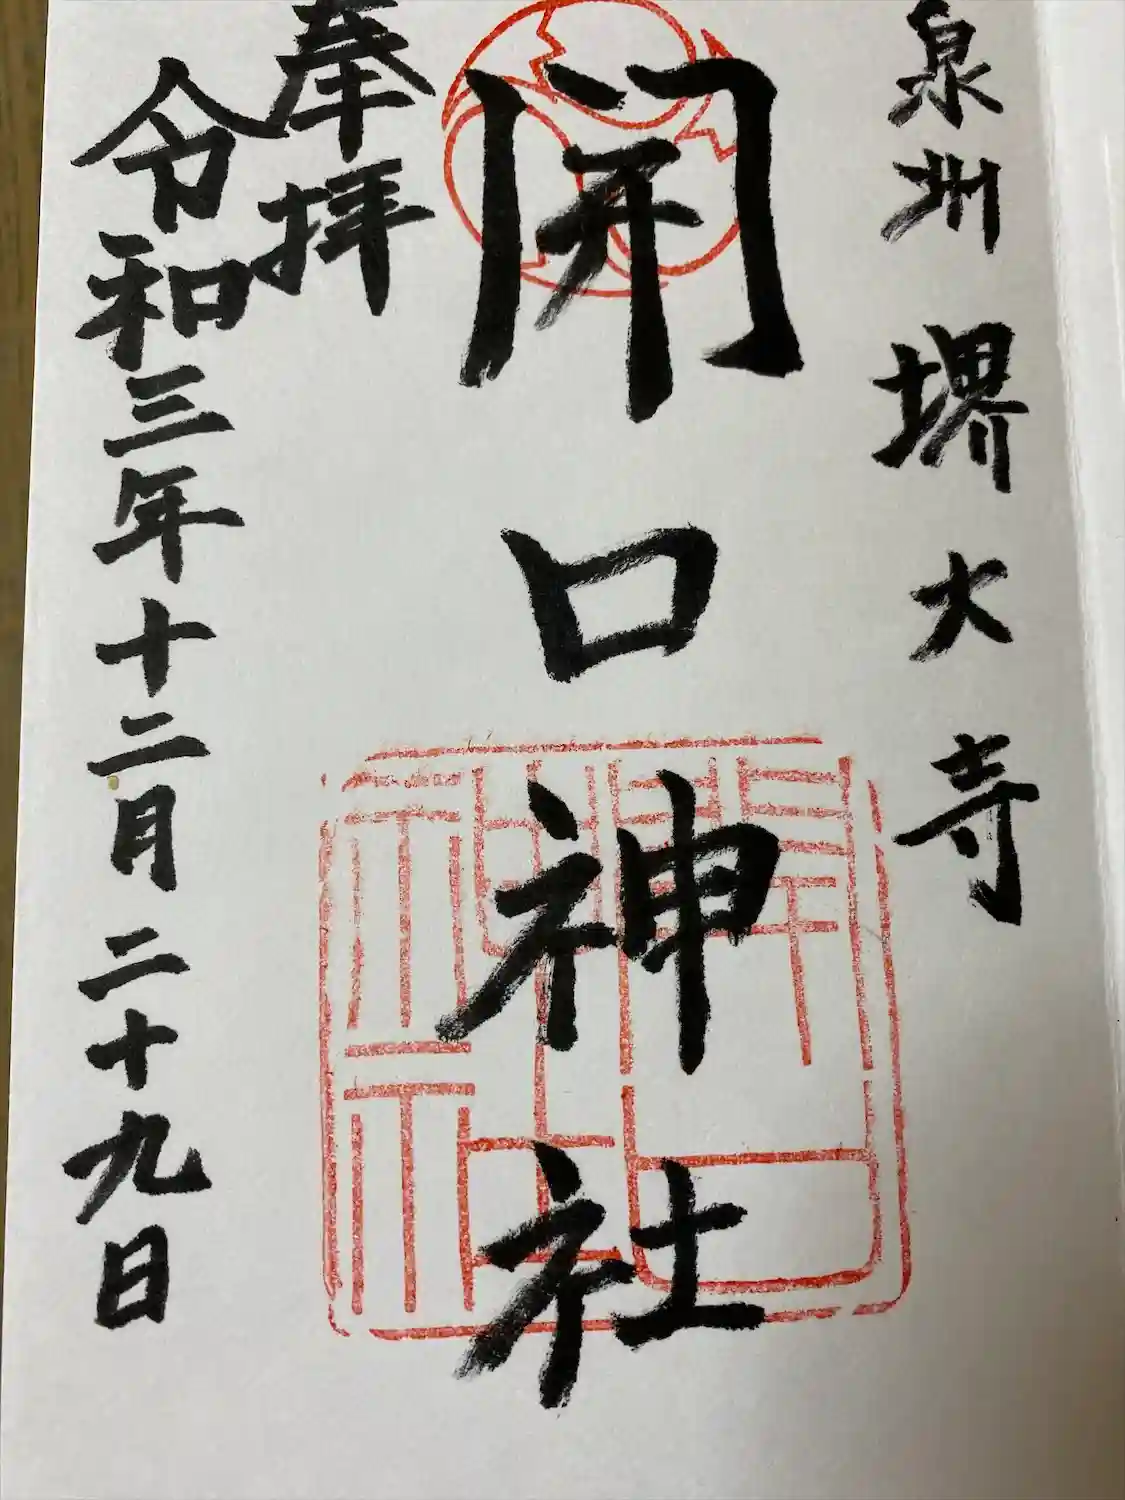 泉州堺大寺
開口神社
奉拝
令和三年十二月二十九日
開口神社